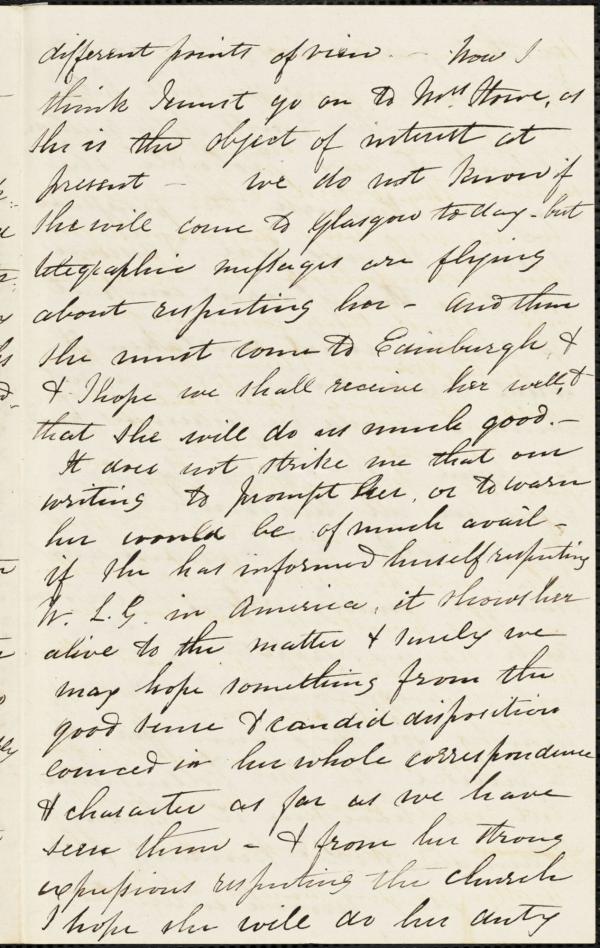 different points of view. - Now I
think I must go on to Mrs Stowe, as
she is the object of interest at
present - we do not know if
she will come to Glasgow to day - but
telegraphic messages are flying
about respecting her - And then
she must come to Edinburgh &
& I hope we shall receive her well, &
that she will do us much good. -
It does not strike me that our
writing to prompt her, or to warn
her would be of much avail -
if she has informed herself respecting
W. L. G. in America, it shows her
alive to the matter & surely we
may hope something from the
good sense & candid disposition
evinced in her whole correspondence
& character as far as we have
seen them - & from her strong
expressions respecting the church
I hope she will do her duty